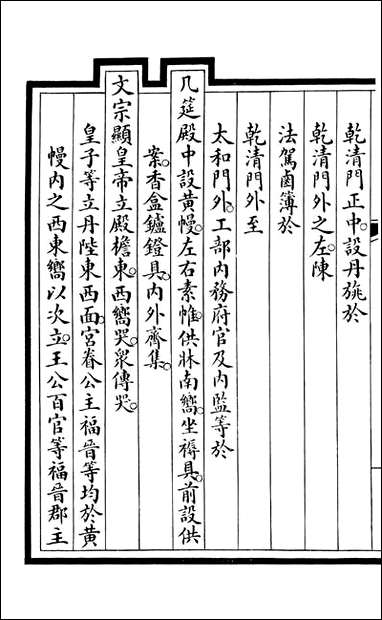 乾清門正中。設丹旐於
乾清門外之左。陳
法駕鹵簿於
乾清門外至
太和門外。工部內務府官及內監等於
几筵殿中設黃幔。左右素帷。供牀南嚮。坐褥具。前設供
案。香盒鑪鐙具。內外齊集。
文宗顯皇帝立殿檐東。西嚮哭。眾傳哭。
皇子等立丹陛東西面。宮眷公主福晉等均於黃
幔內之西東嚮以次立。王公百官等福晉郡主